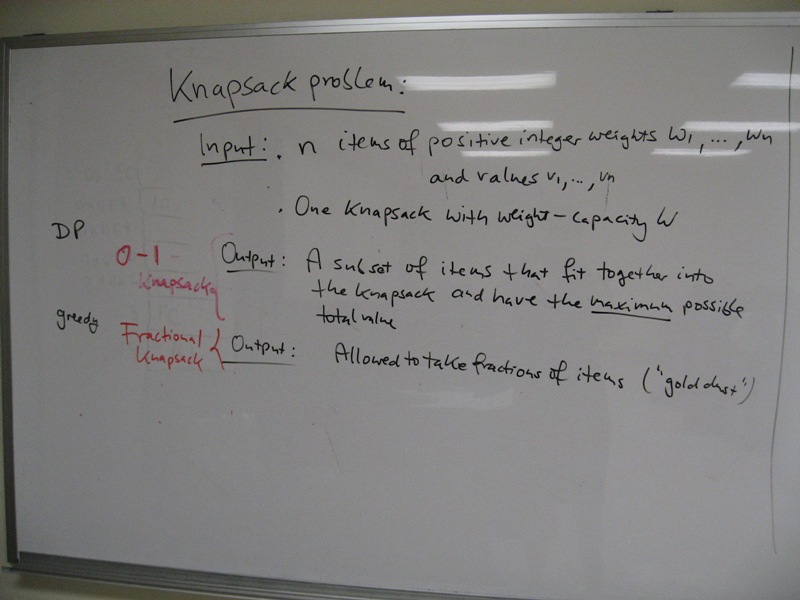 Knapsack problem:
Input: . n items of positive integer weights w1, ..., wn
and values v1, ..., vn
. One Knapsack with weight-capacity W
DP
0-1
Knapsack
Output: A subset of items that fit together into
the knapsack and have the maximum possible
total value
greedy
Fractional
Knapsack
Output: Allowed to take fractions of items ("gold dust")